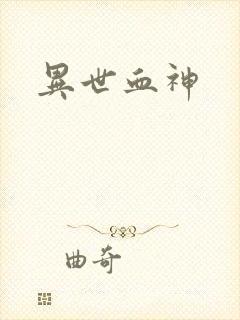 異世血神
曲奇